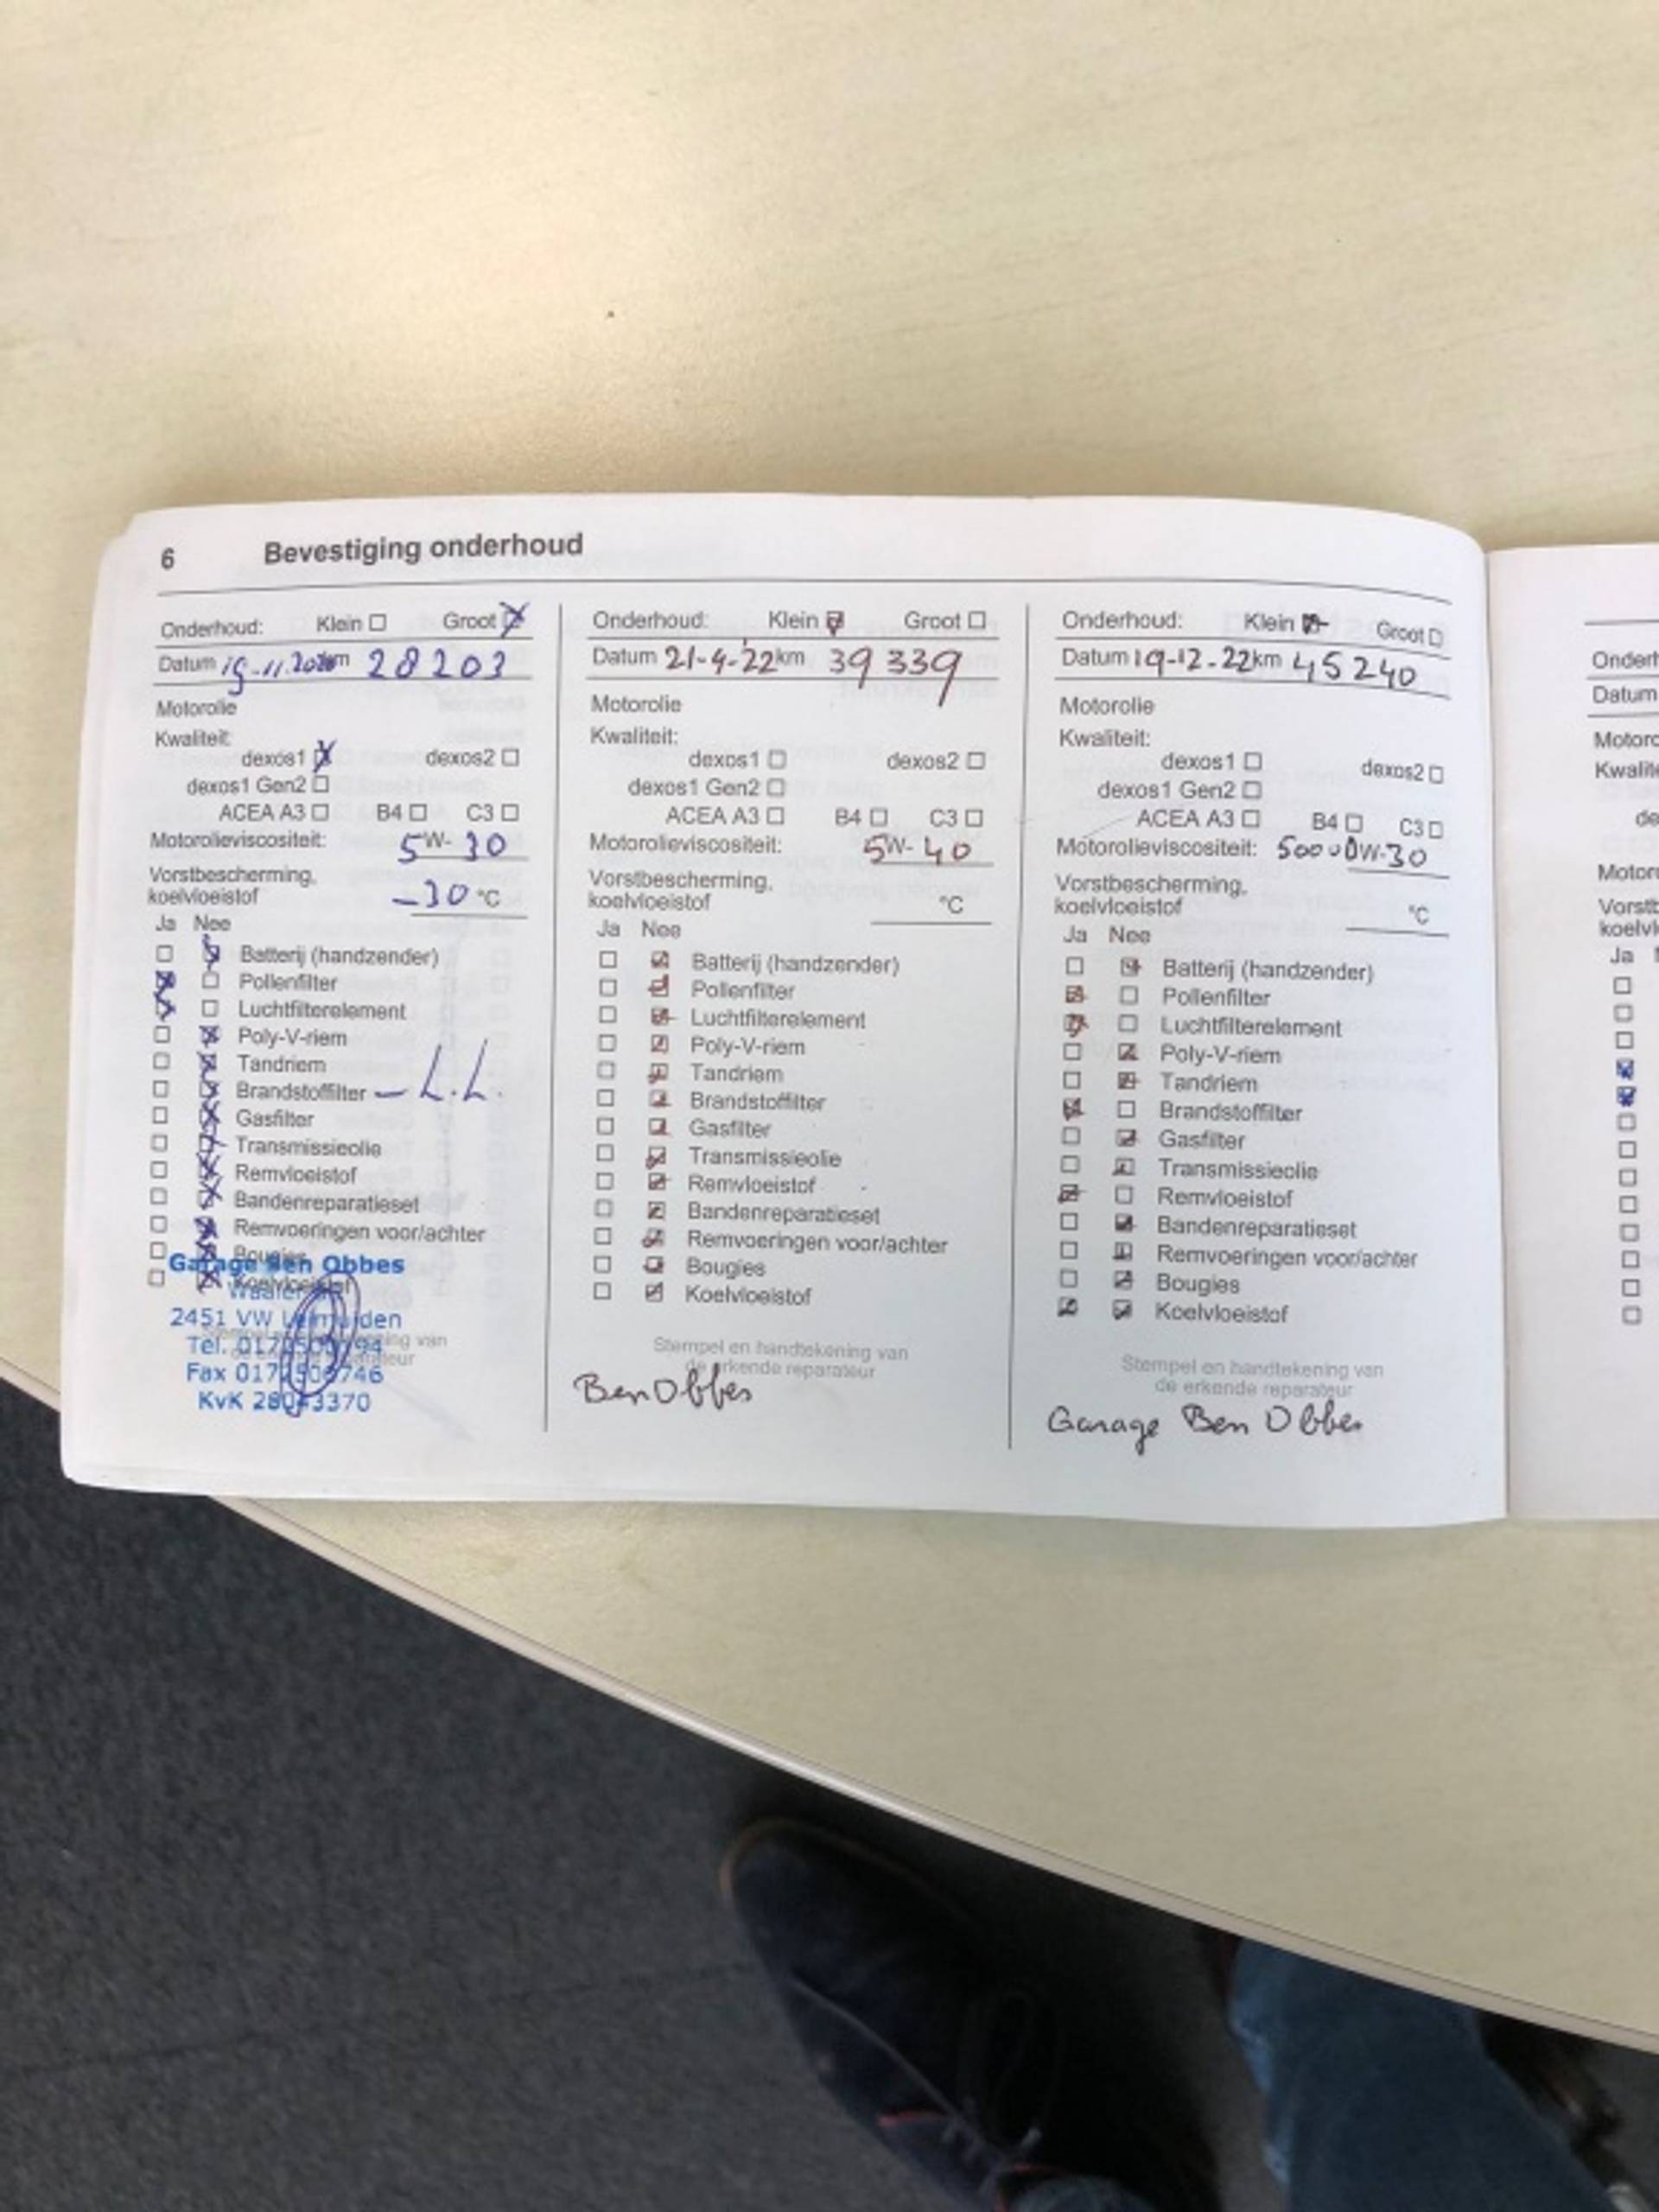 6 Bevestiging onderhoud
Onderhoud: Klein ☐ Groot ☒
Datum km 28203
Motorolie
Kwaliteit:
dexos1 ☒ dexos2 ☐
dexos1 Gen2 ☐
ACEA A3 ☐ B4 ☐ C3 ☐
Motorolieviscositeit: 5W-30
Vorstbescherming,
koelvloeistof -30 °C
Ja Nee
☐ ☒ Batterij (handzender)
☒ ☐ Pollenfilter
☒ ☐ Luchtfilterelement
☐ ☒ Poly-V-riem
☐ ☒ Tandriem
☐ ☒ Brandstoffilter – L.L.
☐ ☒ Gasfilter
☐ ☒ Transmissieolie
☐ ☒ Remvloeistof
☐ ☒ Bandenreparatieset
☐ ☒ Remvoeringen voor/achter
☐ ☒ Bougies
Garage Ben Obbes
☐ ☒ Koelvloeistof
2451 VW Leimuiden
Tel.
Fax
KvK
Onderhoud: Klein ☒ Groot ☐
Datum 21-4-22 km 39339
Motorolie
Kwaliteit:
dexos1 ☐ dexos2 ☐
dexos1 Gen2 ☐
ACEA A3 ☐ B4 ☐ C3 ☐
Motorolieviscositeit: 5W-40
Vorstbescherming,
koelvloeistof °C
Ja Nee
☐ ☒ Batterij (handzender)
☐ ☒ Pollenfilter
☐ ☒ Luchtfilterelement
☐ ☒ Poly-V-riem
☐ ☒ Tandriem
☐ ☒ Brandstoffilter
☐ ☒ Gasfilter
☐ ☒ Transmissieolie
☐ ☒ Remvloeistof
☐ ☒ Bandenreparatieset
☐ ☒ Remvoeringen voor/achter
☐ ☒ Bougies
☐ ☒ Koelvloeistof
Stempel en handtekening van
de erkende reparateur
Ben Obbes
Onderhoud: Klein ☒ Groot ☐
Datum 19-12-22 km 45240
Motorolie
Kwaliteit:
dexos1 ☐ dexos2 ☐
dexos1 Gen2 ☐
ACEA A3 ☐ B4 ☐ C3 ☐
Motorolieviscositeit: W-30
Vorstbescherming,
koelvloeistof °C
Ja Nee
☐ ☒ Batterij (handzender)
☒ ☐ Pollenfilter
☒ ☐ Luchtfilterelement
☐ ☒ Poly-V-riem
☐ ☒ Tandriem
☒ ☐ Brandstoffilter
☐ ☒ Gasfilter
☐ ☒ Transmissieolie
☒ ☐ Remvloeistof
☐ ☒ Bandenreparatieset
☐ ☒ Remvoeringen voor/achter
☐ ☒ Bougies
☒ ☒ Koelvloeistof
Stempel en handtekening van
de erkende reparateur
Garage Ben Obbes
Datum
Ja